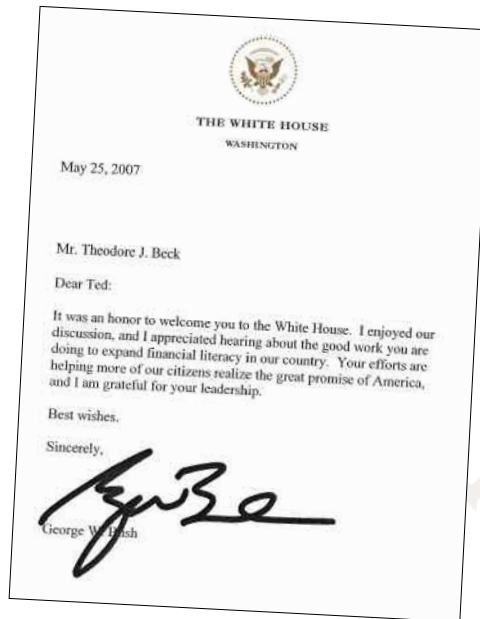 THE WHITE HOUSE
WASHINGTON
May 25, 2007
Mr. Theodore J. Beck
Dear Ted:
It was an honor to welcome you to the White House. I enjoyed our
discussion, and I appreciated hearing about the good work you are
doing to expand financial literacy in our country. Your efforts are
helping more of our citizens realize the great promise of America,
and I am grateful for your leadership.
Best wishes.
Sincerely,
George W. Bush